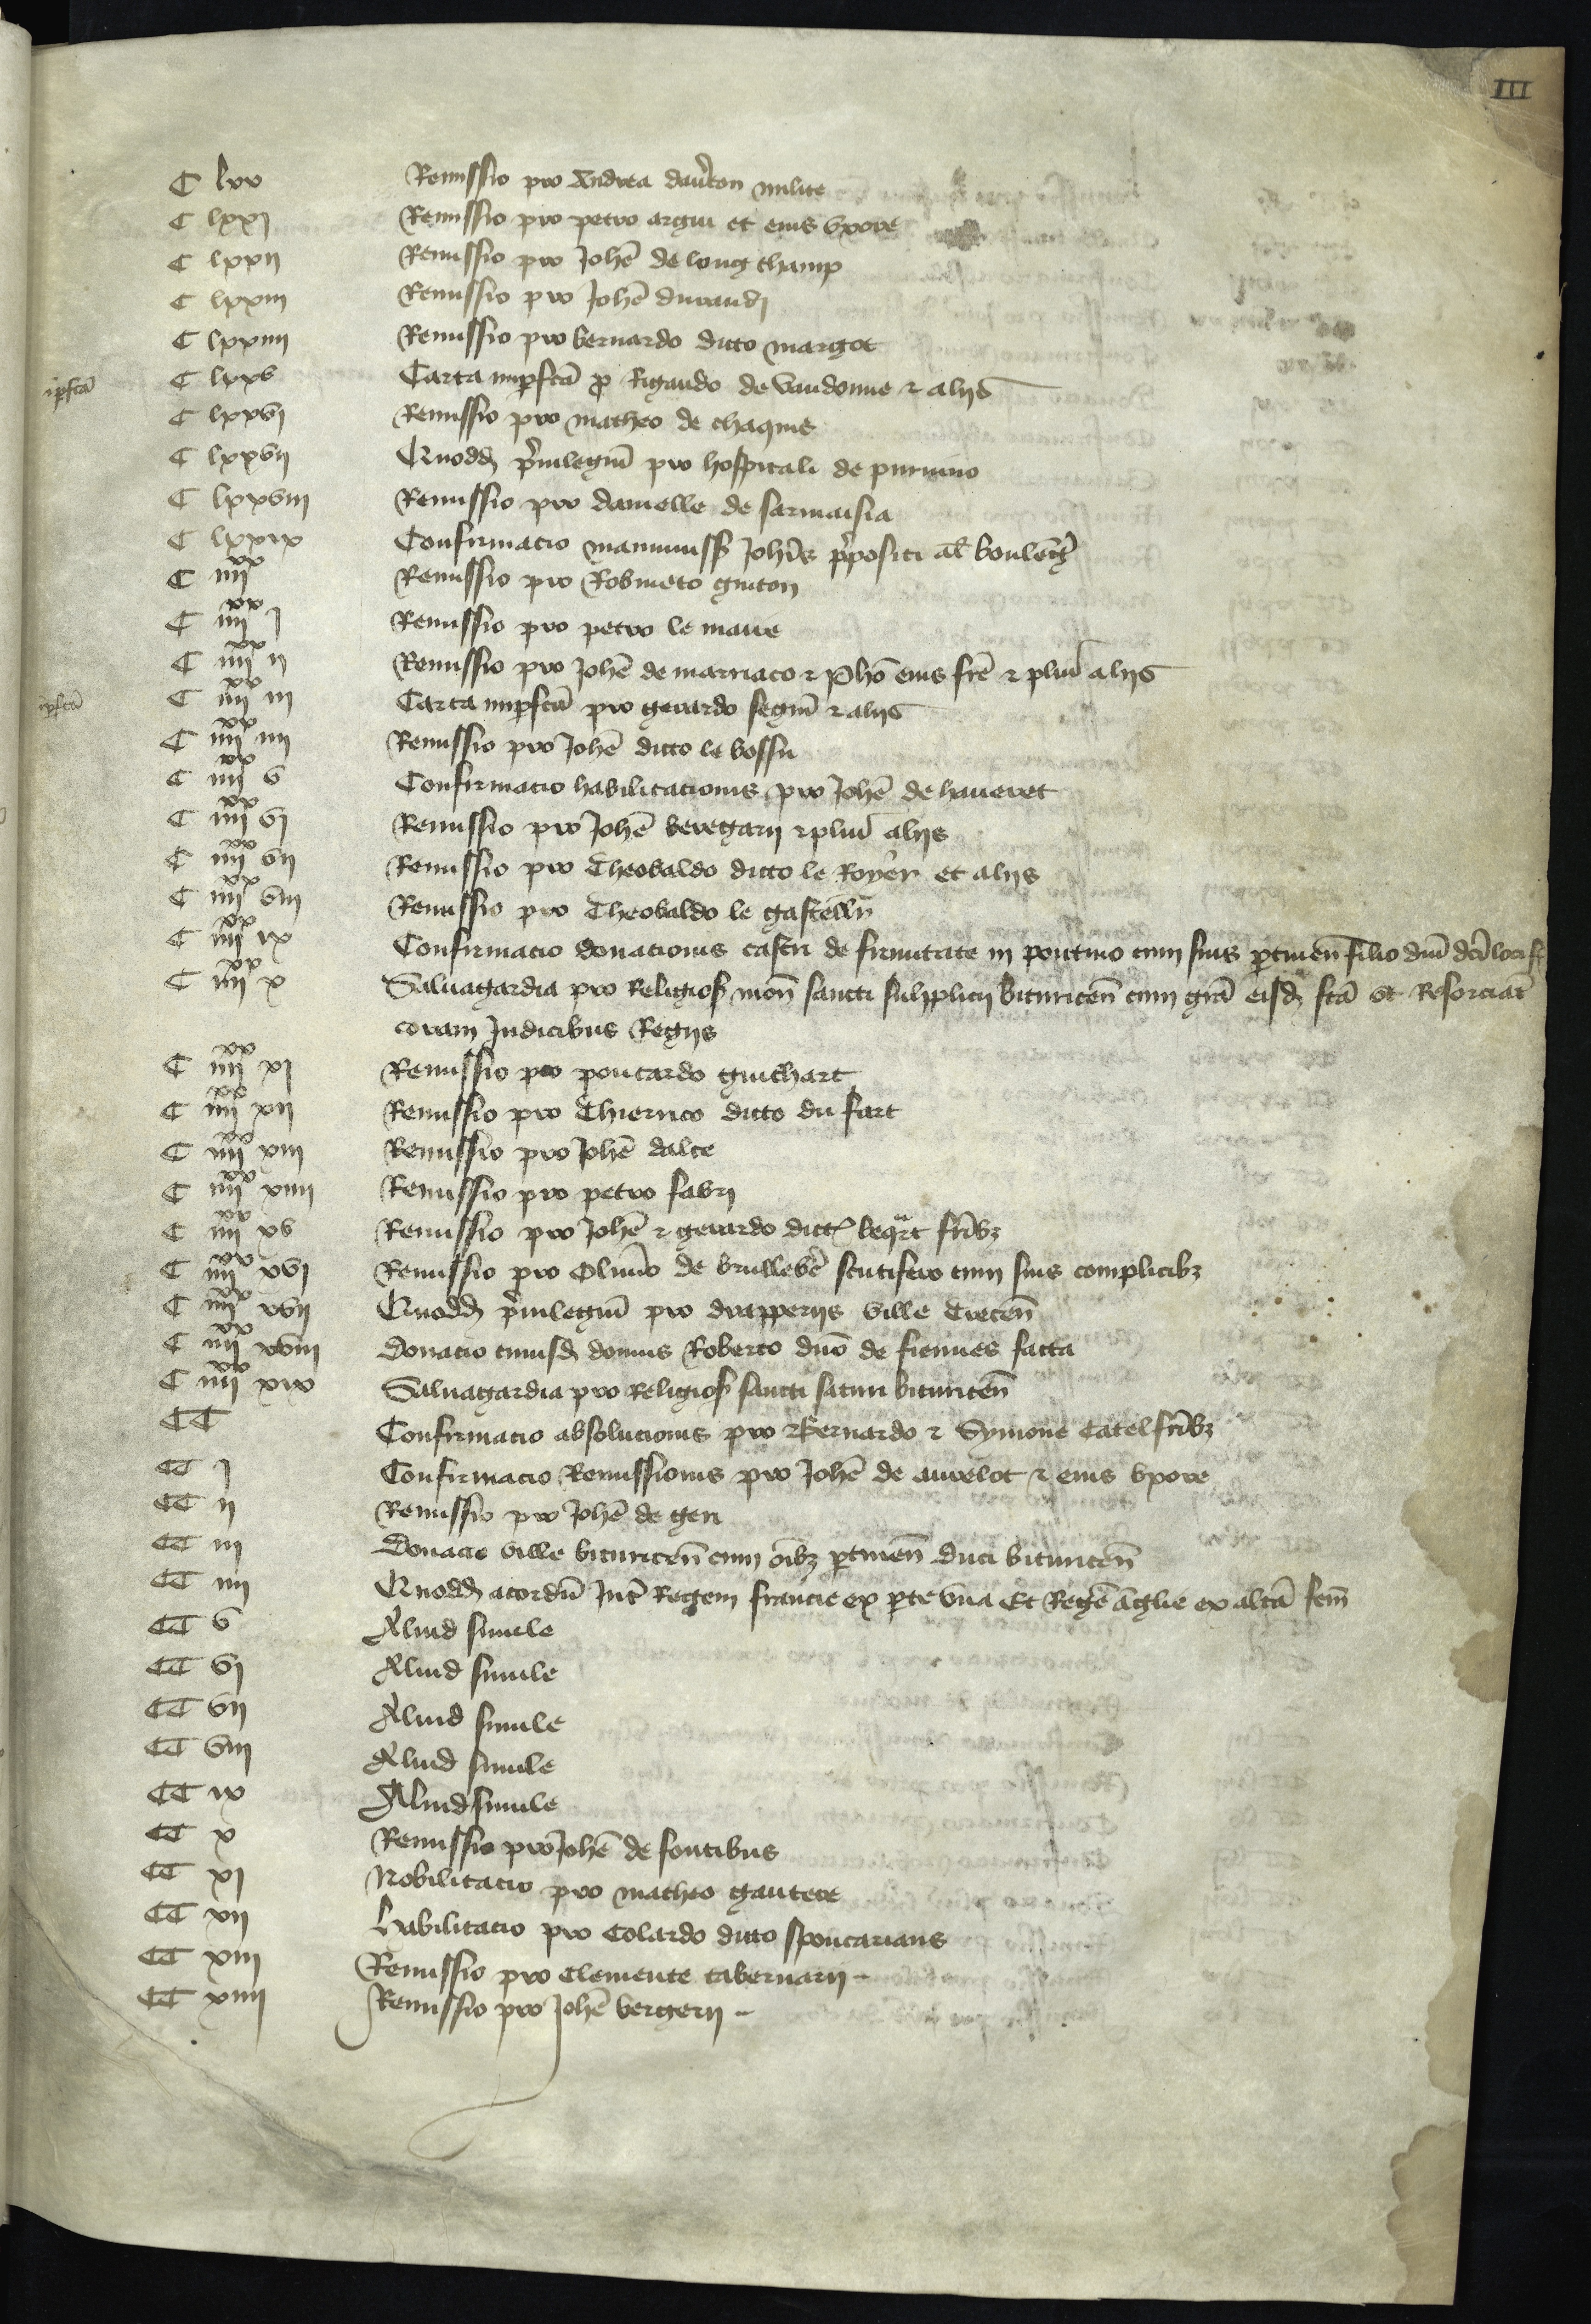 III
C lxx Remissio pro Andrea dav̾ton milite
C lxxj Remissio pro petro argui et eius vxore
C lxxij Remissio pro Joh̄e de long champ
C lxxiij Remissio pro Joh̄e durandj
C lxxiiij Remissio pro bernardo dicto margot
ip̱fc̄a C lxxv Carta imp̱fc̄a p̱ Rigaudo de vaudonne ⁊ alijs
C lxxvj Remissio pro matheo de chaqnis
C lxxvij Quodd̄ p̾uilegiū pro hospitali de pruuino
C lxxviij Remissio pro damelle de sarmaisia
C lxxix Confirmacio manumiss̄ Joh̄is p̾positi al̄s boulēḡ
C iiijxx Remissio pro Robineto guiton
C iiijxx j Remissio pro petro le maire
C iiijxx ij Remissio pro Joh̄e de marriaco ⁊ Ph̄o eius fr̄e ⁊ pluri alijs
ip̱fc̄a C iiijxx iij Carta imp̱fc̄a pro gerardo seguī ⁊ alijs
C iiijxx iiij Remissio pro Joh̄e dicto le bossu
C iiijxx v Confirmacio habilitacionis pro Joh̄e de haueret
C iiijxx vj Remissio pro Joh̄e beregarij ⁊ pluri alijs
C iiijxx vij Remissio pro Theobaldo dicto le Royer et alijs
C iiijxx viij Remissio pro Theobaldo le gastell̄r
C iiijxx ix Confirmacio donacionis castri de firmitate in pontiuo cum suis p̱tinen̄ filio dn̄i dc̄i loci
C iiijxx x Saluagardia pro Religios̄ mon̄ sancti sulpplicij bituricen̄ cum gr̄a eisd̄ fc̄a et Resorciat̄
coram Judicibus Regijs
C iiijxx xj Remissio pro poncardo guichart
C iiijxx xij Remissio pro Thierrico dicto du fart
C iiijxx xiij Remissio pro Joh̄e dalte
C iiijxx xiiij Remissio pro petro fabrj
C iiijxx xv Remissio pro Joh̄e ⁊ gerardo dict̄ beqr̄t fr̄ibꝫ
C iiijxx xvj Remissio pro Oliuio de brullev̾e scutifero cum suis complicibꝫ
C iiijxx xvij Quodd̄ p̾uilegiū pro drapperijs ville Trecen̄
C iiijxx xviij Donacio cuiusd̄ domus Roberto dn̄o de fiennes facta
C iiijxx xix Saluagardia pro Religios̄ sancti satiri bituricen̄
CC Confirmacio absolucionis pro Bernardo ⁊ Symone Catel fr̄ibꝫ
CC j Confirmacio Remissionis pro Joh̄e de aurelot ⁊ eius vxore
CC ij Remissio pro Joh̄e de geri
CC iij Donacio ville bituricen̄ cum oībꝫ p̱tinen̄ duci bituricen̄
CC iiij Quodd̄ acordū Int̾ Regem francie ex p̱te vna Et Regē āglie ex altā sem̄
CC v Aliud simile
CC vj Aliud simile
CC vij Aliud simile
CC viij Aliud simile
CC ix Aliud simile
CC x Remissio pro Joh̄e de fontibus
CC xj Nobilitacio pro matheo gautere
CC xij Habilitacio pro Colardo dicto spoucarians
CC xiij Remissio pro Clemente tabernarij
CC xiiij Remissio pro Joh̄e bergerij